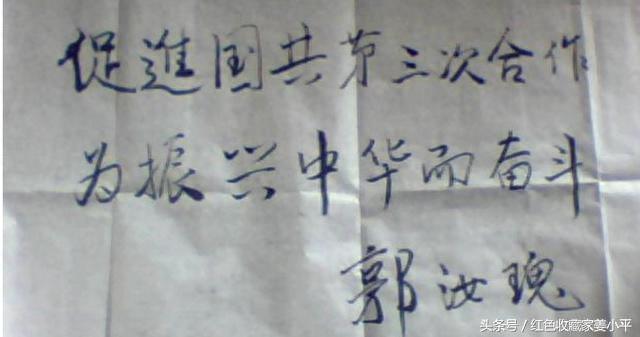 促進国共第三次合作
为振兴中华而奋斗
郭汝瑰
头条号 / 红色收藏家姜小平